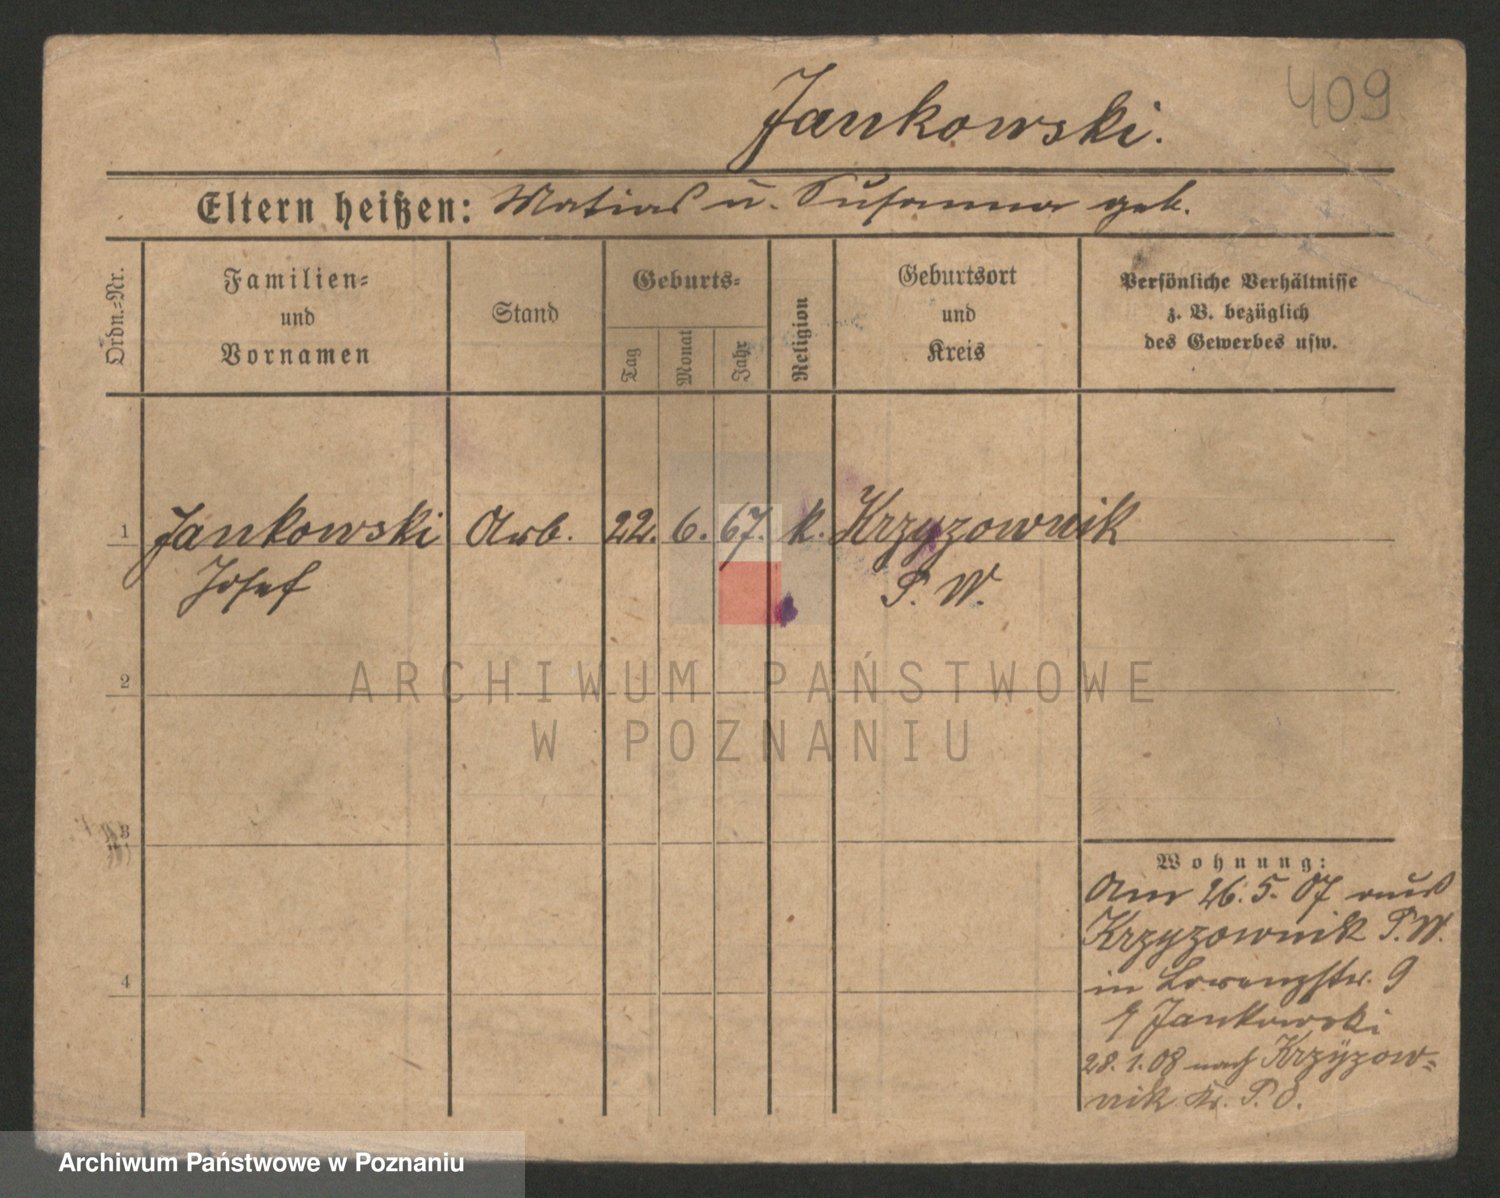 409
Jankowski.
Eltern heißen: Matias u. Susanna geb.
Ordn.-Nr.
Familien-
und
Vornamen
Stand
Geburts-
Tag
Monat
Jahr
Religion
Geburtsort
und
Kreis
Persönliche Verhältnisse
z. B. bezüglich
des Gewerbes usw.
1 Jankowski Arb. 22. 6. 67. k. Krzyzownik
Josef P. W.
2
ARCHIWUM PAŃSTWOWE
W POZNANIU
3
Wohnung:
Am 26.5.07 aus
Krzyzownik P.W.
in Lorenzstr. 9
Jankowski
4
28.1.08 nach Krzyzow-
nik Kr. P. O.
Archiwum Państwowe w Poznaniu